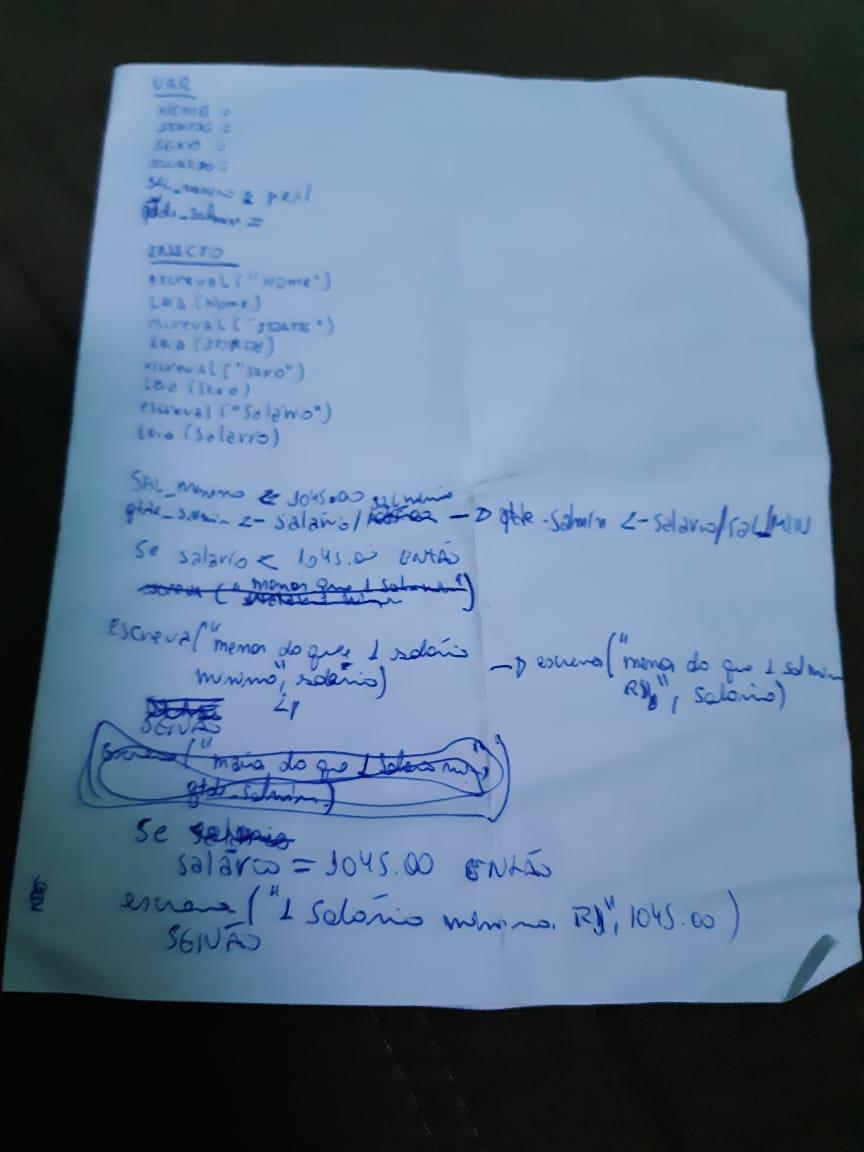 VAR
NOME =
IDADE =
SEXO =
SALARIO =
SAL_minimo = real
qtde_salmin =
INICIO
escreval("Nome")
Leia (Nome)
escreval("IDADE")
Leia (IDADE)
escreval("sexo")
Leia (Sexo)
escreval("Salário")
Leia (Salário)
SAL_minimo <- 1045.00
qtde_salmin <- salário/ -> qtde-salmin <- salário/salMIN
Se salario < 1045.00 ENTÃO
escreva ("menor que 1 salario")
Escreva("menor do que 1 salário
minimo", salário)
-> escreva("menor do que 1 salmin
R$", salário)
SEINÃO
escreva("maio do que 1 salario min",
qtde-salmin)
Se
salário = 1045.00 ENTÃO
escreva ("1 Salário minimo. R$", 1045.00)
SEINÃO